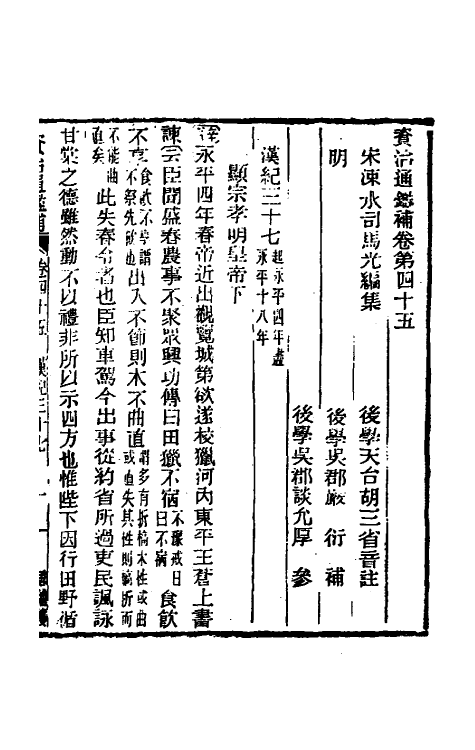 資治通鑑補卷第四十五
宋涑水司馬光編集
後學天台胡三省音註
明
後學吳郡嚴衍補
後學吳郡談允厚參
漢紀三十七起永平四年盡永平十八年
顯宗孝明皇帝下
永平四年春帝近出觀覽城第欲遂校獵河內東平王蒼上書
諫云臣聞盛春農事不聚眾興功傳曰田獵不宿不豫戒日曰不宿食飲
不享食飲不享謂不祭先神也出入不節則木不曲直謂多有折槁木性或曲或直失其性則槁折而
不能曲直矣此失春令者也臣知車駕今出事從約省所過吏民諷詠
甘棠之德雖然動不以禮非所以示四方也惟陛下因行田野循
資治通鑑補
卷四十五
漢紀三十七
一